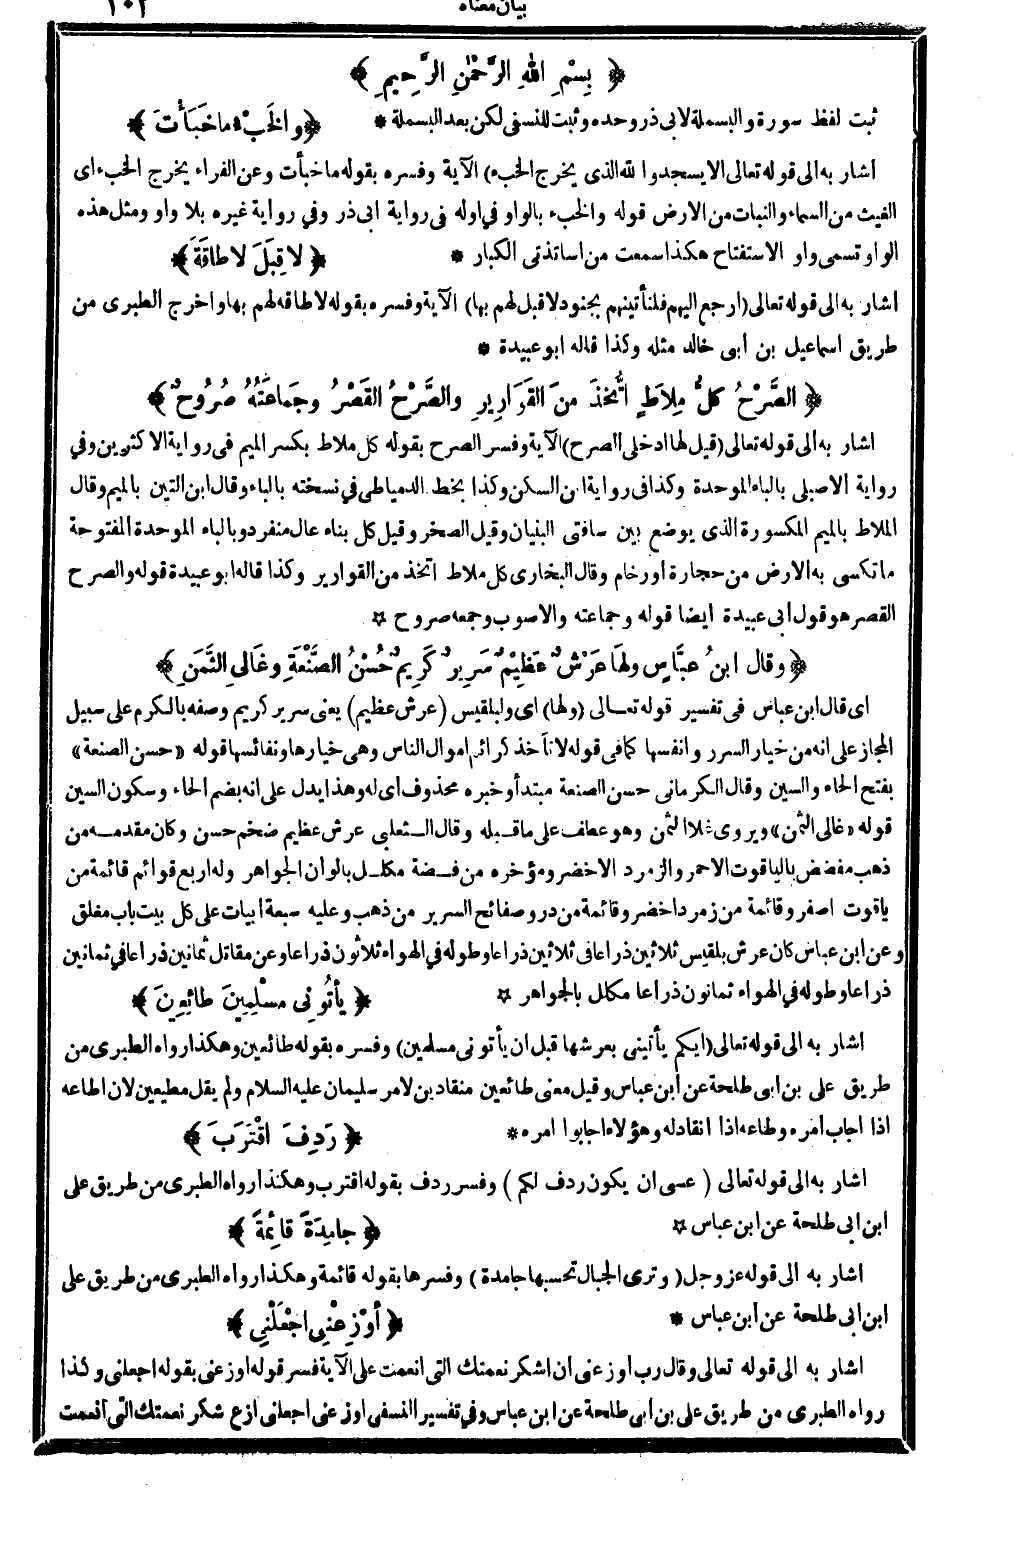 بيان معناه
﴿ بِسْمِ اللهِ الرَّحْمٰنِ الرَّحِيمِ ﴾
ثبت لفظ سورة والبسملة لابى ذر وحده وثبت للنسفى لكن بعد البسملة * ﴿ والخَبْءُ ماخَبَأْتَ ﴾
اشار به الى قوله تعالى الا يسجدوا لله الذى يخرج الخبء) الآية وفسره بقوله ماخبأت وعن الفراء يخرج الخبء اى
الغيث من السماء والنبات من الارض قوله والخبء بالواو في اوله فى رواية ابى ذر وفي رواية غيره بلا واو ومثل هذه
الواو تسمى واو الاستفتاح هكذا سمعت من اساتذتى الكبار * ﴿ لا قِبَلَ لاطاقَةَ ﴾
اشار به الى قوله تعالى (ارجع اليهم فلنأتينهم بجنود لا قبل لهم بها) الآية وفسره بقوله لاطاقه لهم بها واخرج الطبرى من
طريق اسماعيل بن أبى خالد مثله وكذا قاله ابو عبيدة *
﴿ الصَّرْحُ كلُّ مِلاَطٍ اتُّخِذَ منَ القَوَارِيرِ والصَّرْحُ القَصْرُ وجَماعَتُهُ صُرُوحٌ ﴾
اشار به الى قوله تعالى (قيل لها ادخلى الصرح) الآية وفسر الصرح بقوله كل ملاط بكسر الميم فى رواية الاكثرين وفي
رواية الاصيلى بالباء الموحدة وكذا فى رواية ابن السكن وكذا بخط الدمياطى في نسخته بالباء وقال ابن التين بالميم وقال
الملاط بالميم المكسورة الذى يوضع بين سافتى البنيان وقيل الصخر وقيل كل بناء عال منفرد وبالباء الموحدة المفتوحة
ماتكسى به الارض من حجارة أو رخام وقال البخارى كل ملاط اتخذ من القوارير وكذا قاله ابو عبيدة قوله والصرح
القصر هو قول أبى عبيدة ايضا قوله وجماعته والاصوب وجمعه صروح ☆
﴿ وقال ابنُ عبَّاسٍ ولها عَرْشٌ عَظِيْمٌ سَرِيرٌ كَرِيمٌ حُسْنُ الصَّنْعَةِ وغَالِى الثَّمَنِ ﴾
اى قال ابن عباس فى تفسير قوله تعالى (ولها) اى ولبلقيس (عرش عظيم) يعنى سرير كريم وصفه بالكرم على سبيل
المجاز على انه من خيار السرر وانفسها كما فى قوله لا تأخذ كرائم اموال الناس وهى خيارها ونفائسها قوله «حسن الصنعة»
بفتح الحاء والسين وقال الكرمانى حسن الصنعة مبتدأ وخبره محذوف اى له وهذا يدل على انه بضم الحاء وسكون السين
قوله «غالى الثمن» ويروى غلا الثمن وهو عطف على ما قبله وقال الثعلبى عرش عظيم ضخم حسن وكان مقدمه من
ذهب مفضض بالياقوت الاحمر والزمرد الاخضر ومؤخره من فضة مكلل بالوان الجواهر وله اربع قوائم قائمة من
ياقوت اصفر وقائمة من زمرد اخضر وقائمة من در وصفائح السرير من ذهب وعليه سبعة ابيات على كل بيت باب مغلق
وعن ابن عباس كان عرش بلقيس ثلاثين ذراعا فى ثلاثين ذراعا وطوله في الهواء ثلاثون ذراعا وعن مقاتل ثمانين ذراعا في ثمانين
ذراعا وطوله في الهواء ثمانون ذراعا مكلل بالجواهر ☆ ﴿ يأتُونِى مسْلِمِينَ طائِعِينَ ﴾
اشار به الى قوله تعالى (ايكم يأتينى بعرشها قبل ان يأتونى مسلمين) وفسره بقوله طائعين وهكذا رواه الطبرى من
طريق على بن ابى طلحة عن أبن عباس وقيل معنى طائعين منقادين لامر سليمان عليه السلام ولم يقل مطيعين لان اطاعه
اذا اجاب أمره وطاعه اذا انقاد له وهؤلاء اجابوا امره * ﴿ رَدِفَ اقْتَرَبَ ﴾
اشار به الى قوله تعالى ( عسى ان يكون ردف لكم ) وفسر ردف بقوله اقترب وهكذا رواه الطبرى من طريق على
ابن ابى طلحة عن ابن عباس ☆ ﴿ جامِدَةً قائِمةً ﴾
اشار به الى قوله عز وجل (وترى الجبال تحسبها جامدة) وفسرها بقوله قائمة وهكذا رواه الطبرى من طريق على
ابن ابى طلحة عن ابن عباس * ﴿ أوْزِعْنِى اجْعَلْنِي ﴾
اشار به الى قوله تعالى وقال رب أوزعنى أن اشكر نعمتك التى انعمت على الآية فسر قوله اوزعنى بقوله اجعلنى وكذا
رواه الطبرى من طريق على بن أبى طلحة عن ابن عباس وفي تفسير النسفى اوزعنى اجعلنى ازع شكر نعمتك التى أنعمت